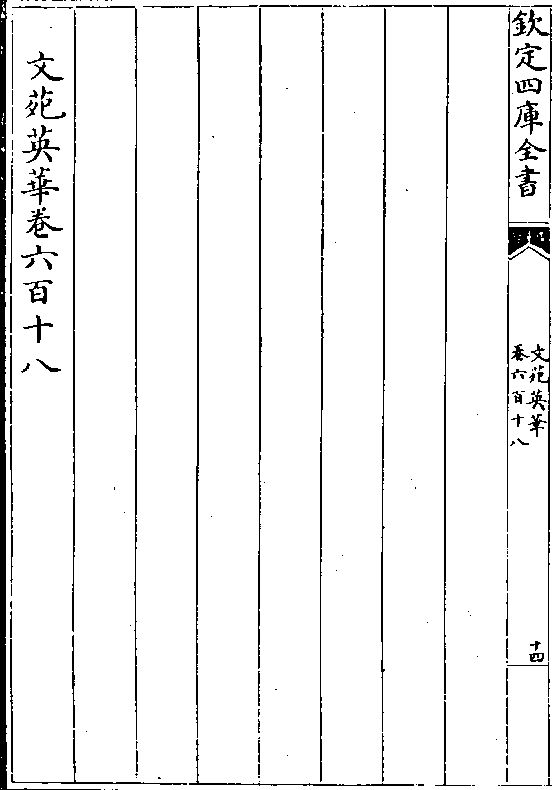 欽定四庫全書
文苑英華
卷六百十八
十四
文苑英華卷六百十八